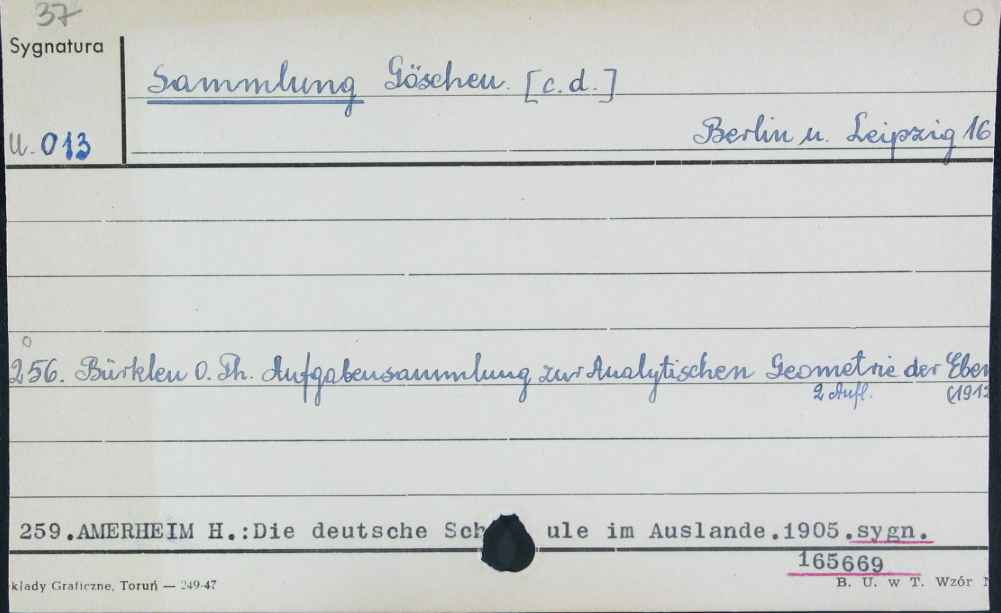 37
Sygnatura
Sammlung Göschen. [c.d.]
U. 013
Berlin u. Leipzig 16
256. Bürklen O. Th. Aufgabensammlung zur Analytischen Geometrie der Eben
2 Aufl. (1912
259.AMERHEIM H.:Die deutsche Sch ule im Auslande.1905.sygn.
165669
kłady Graficzne, Toruń — 249-47
B. U. w T. Wzór